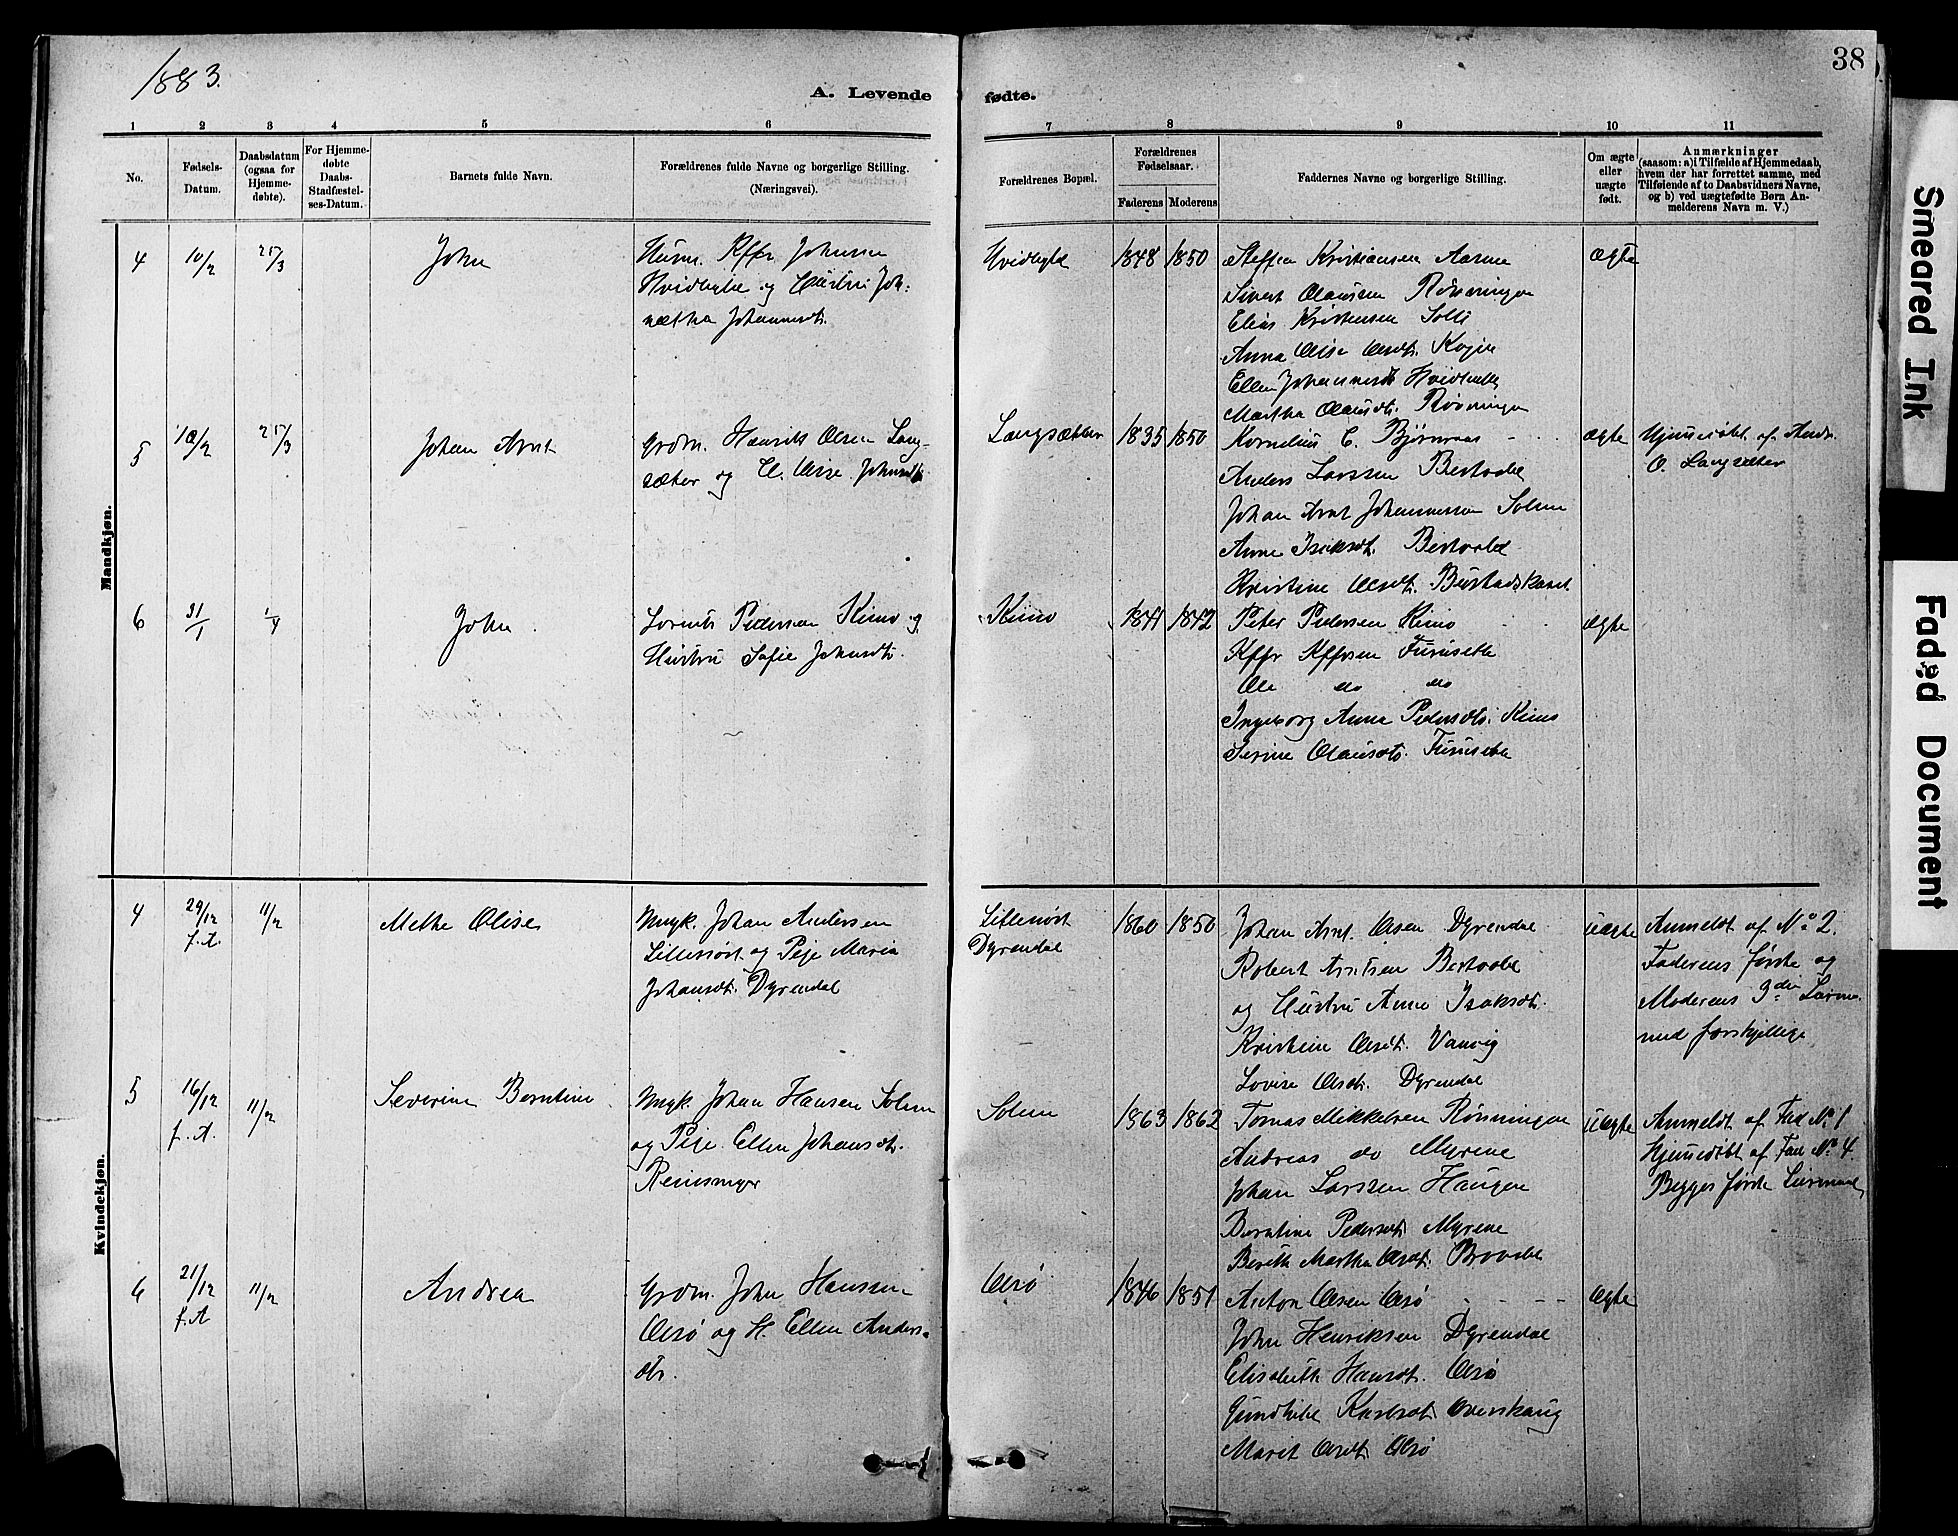 1883.
38
A. Levende fødte.
1 2 3 4 5 6 7 8 9 10 11
No.
Fødsels-
Datum.
Daabsdatum
(ogsaa for
Hjemme-
døbte).
For Hjemme-
døbte
Daabs-
Stadfæstel-
ses-Datum.
Barnets fulde Navn.
Forældrenes fulde Navne og borgerlige Stilling.
(Næringsvei).
Forældrenes Bopæl.
Forældrenes
Fødselsaar.
Faderens Moderens
Faddernes Navne og borgerlige Stilling.
Om ægte
eller
uægte
født.
Anmærkninger
(saasom: a) i Tilfælde af Hjemmedaab,
hvem der har forrettet samme, med
Tilføiende af to Daabsvidners Navne,
og b) ved uægtefødte Børn An-
melderens Navn m. V.)
Mandkjøn.
4 10/2 25/3 John
Husm. Kffr Johnsen
og Hustru Joh-
Johannesdt.
1848 1850
Steffen Kristiansen Aarne
Sivert Olaussen Rønningen
Elias Kristensen
Anna Olise Olsdt.
Ellen Johannesdt
Martha Olausdt. Rønningen
ægte
5 25/3 Johan Arnt
Grdm. Henrik Olsen Lang-
sæter og H. Olise Johnsdt
1835 1850
Kornelius C. Bjørnaas
Anders Larssen Berdahl
Johan Arnt Johannessen Solem
Anne Isaksdt.
Kristine Olsdt.
ægte
Hjemmedøbt af Andr.
O. Langsæter
6 31/1 1/4 John
Lorents Pedersen Kimo og
Hustru Sofie Johnsdt.
Kimo
1841 1842
Peter Pedersen Kimo
Kffr Kffrsen Furusetle
Ole do do
Ingeborg Anna Pedersdt. Kimo
Serine Olausdt. Furusetle
ægte
Kvindekjøn.
4 29/12 f.A. 11/2 Methe Olise
Ungk. Johan Andersen
og Pige Maria
Johansdt. Dyrendal
Dyrendal
1860 1850
Johan Arnt Olsen Dyrendal
Robert Arntsen
og Hustru Anne Isaksdt.
Kristine Olsdt. Vanvig
Lovise Olsdt. Dyrendal
uægte
Anmeldt af No 2.
Faderens første og
Moderens 3die
med forskjellige
5 16/12 f.A. 11/2 Severine Berntine
Ungk. Johan Hansen Solem
og Pige Ellen Johansdt.
Solem
1863 1862
Tomas Mikkelsen Rønningen
Andreas do Myrene
Johan Larssen Haugen
Berntine Pedersdt. Myrene
Berith Martha Olsdt.
uægte
Anmeldt af Fad. No 1
Hjemmedøbt af Fad. No 4
Begges første
6 21/12 f.A 11/2 Andrea
Grdm. John Hansen
Olsø og H. Ellen Anders-
dtr.
Olsø
1846 1851
Anton Olsen Olsø
John Henriksen Dyrendal
Elisabeth Hansdt. Olsø
Gundhild Karlsdt. Overskaug
Marit Olsdt. Olsø
ægte
Smeared Ink
Faded Document